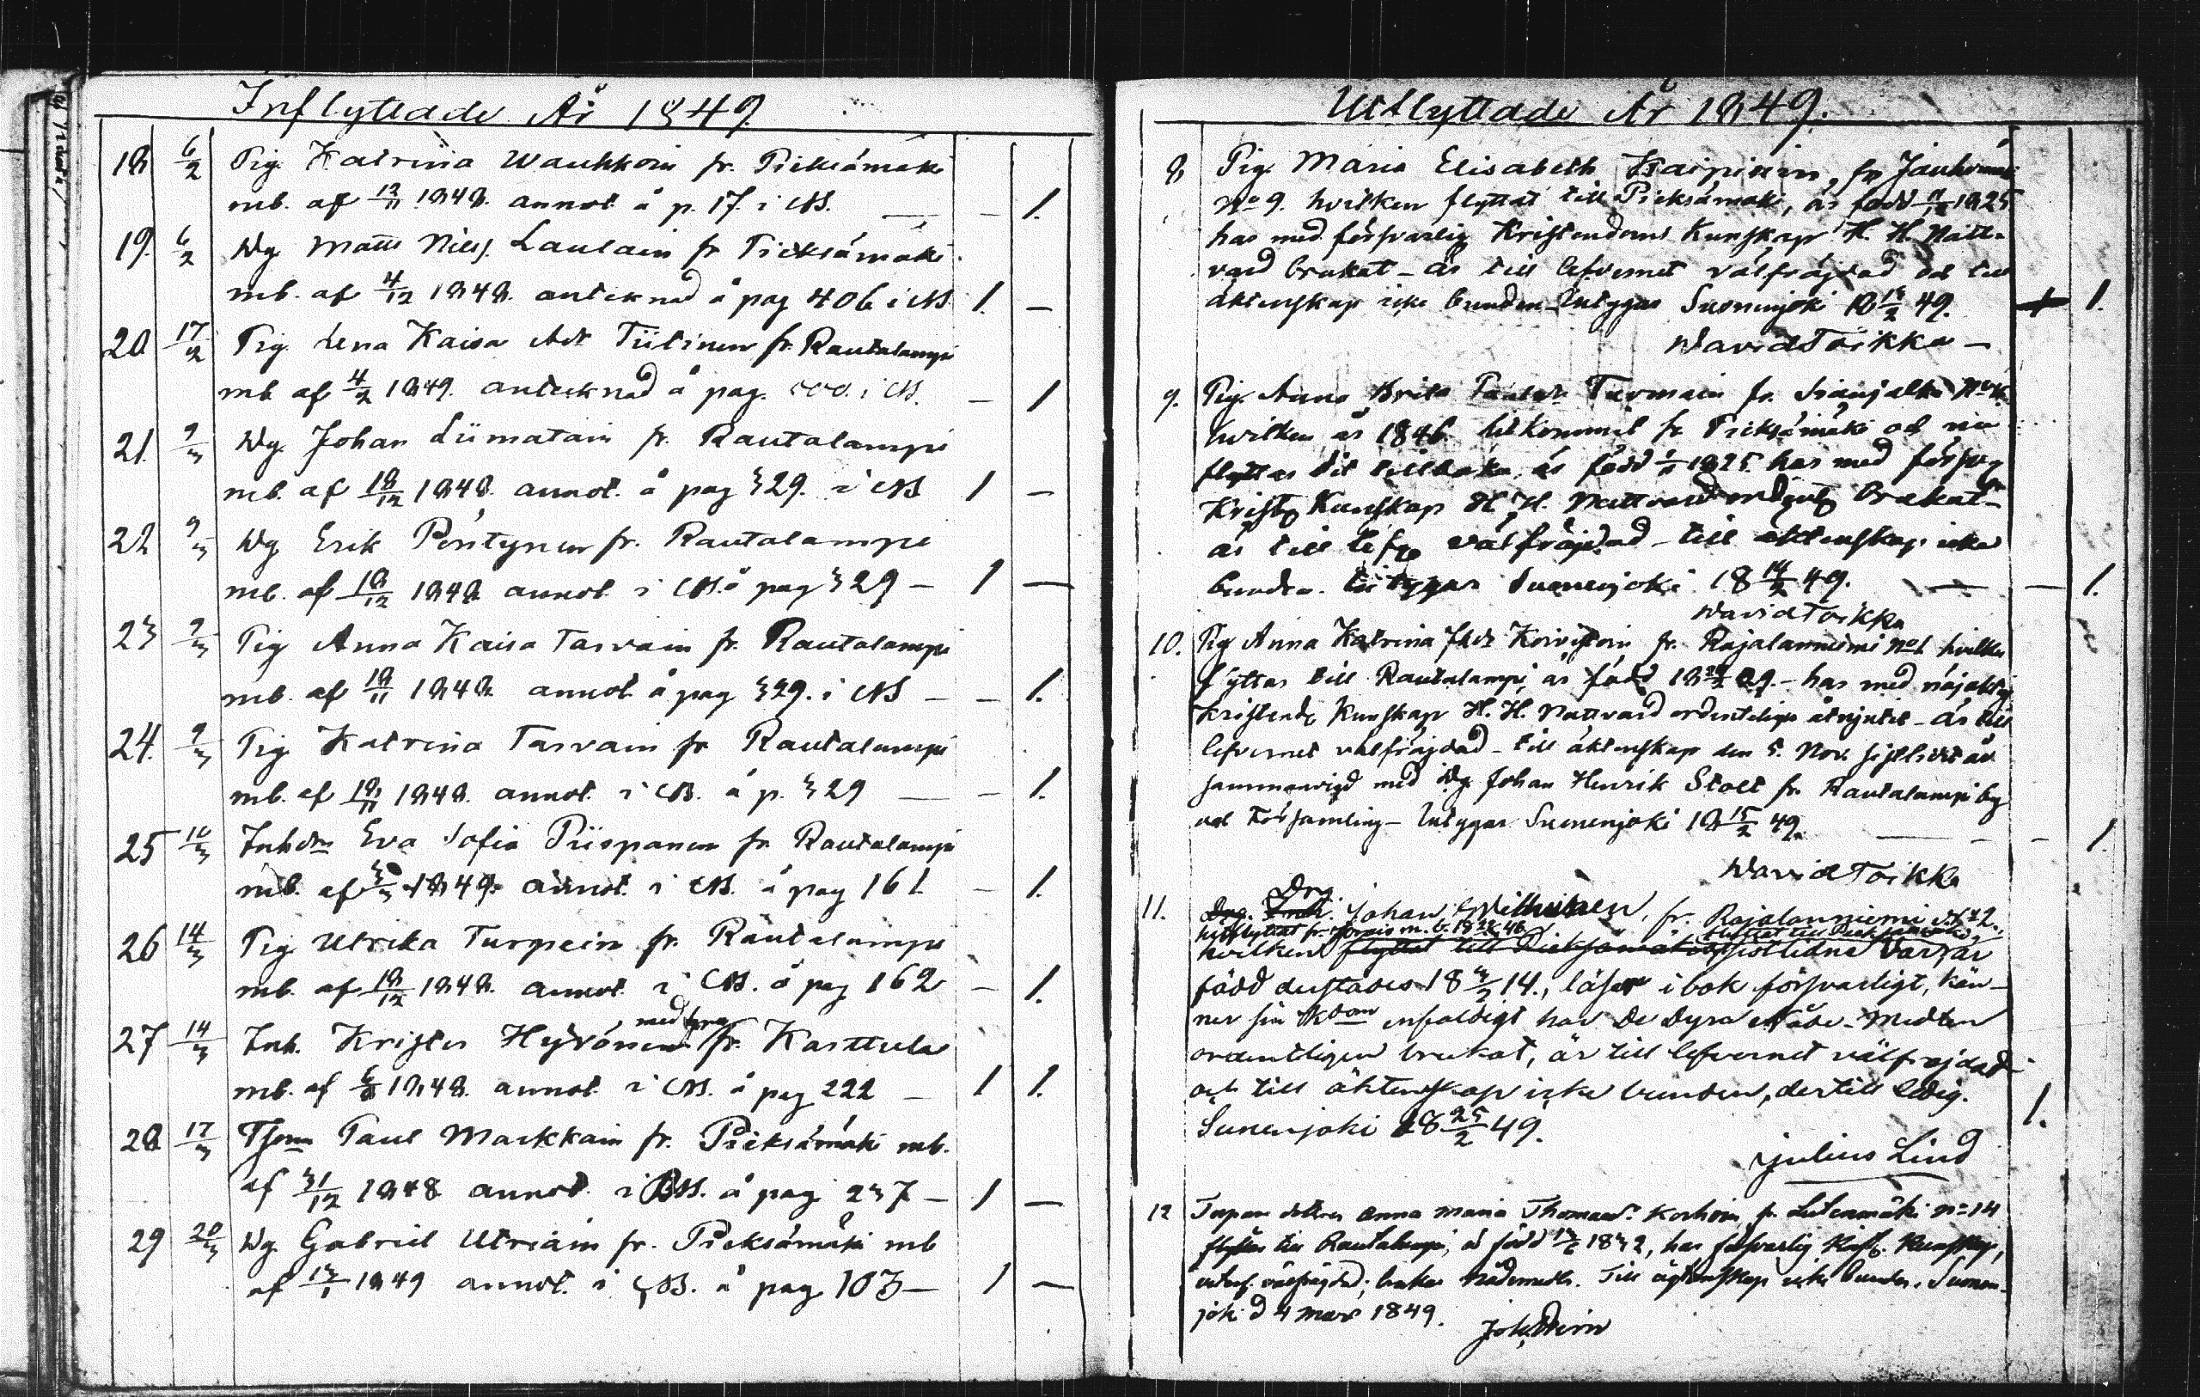 Inflyttade År 1849.
18 6/2 Pig. Katrina Wauhkoin fr. Pieksämäki
mb. af 12/11 1848. annot. å p. 17. i NB. — — 1.
19. 6/2 Dg Matts Nilss. Laulain fr Pieksämäki.
mb. af 4/12 1848. antecknad å pag 406 i NB 1. —
20 17/2 Pig. Lena Kaisa Tiitinen fr. Rautalampi
mb af 4/2 1849. antecknad å pag. i NB. — 1
21. 9/3 Dg Johan Liimatain fr. Rautalampi
mb. af 18/12 1848. annot. å pag 329. i NB 1 —
22 9/3 Dg Erik Pöntynen fr. Rautalampi
mb. af 18/12 1848 annot i NB. å pag 329 — 1 —
23 9/3 Pig Anna Kaisa Tarvain fr. Rautalampi
mb. af 18/11 1848 annot å pag 329. i NB — — 1.
24. 9/3 Pig Katrina Tarvain fr Rautalampi
mb. af 18/11 1848. annot. i NB. å p. 329 — — 1.
25 10/3 Enkan Eva Sofia Piispanen fr Rautalampi
mb. af 1849. annot i NB. å pag 161 — 1.
26 14/3 Pig Ulrika Turpein fr. Rautalampi
mb. af 18/12 1848. annot i NB. å pag 162 — 1.
27 14/3 Inh. Krister Hyvönen med hu fr. Karttula
mb. af 6/8 1848. annot i NB. å pag 222 — 1 1.
28 17/3 Paul Markkain fr. Pieksämäki mb.
af 31/12 1848 annot i NB. å pag 237 — 1 —
29 20/3 Dg. Gabriel Utriain fr. Pieksämäki mb
af 13/1 1849 annot. i NB. å pag 103 — 1 —
Utflyttade År 1849.
8 Pig. Maria Elisabeth Kaipinen, fr
No 9. hvilken flyttat till Pieksämäki, är född 1825
har med försvarlig Kristendoms Kunskap H. H. Natt-
vard brukat – är till lefvernet välfräjdad och till
äktenskap icke bunden – Intygar Suonenjoki 18 49. 1.
David Toikka —
9. Pig. Anna Brita Tarvain fr. No
hvilken år 1846 hitkommit fr Pieksämäki och nu
flyttar dit tillbaka är född 1825 har med försvg
Kristg Kunskap H. H. Nattvard brukat –
är till lefv välfräjdad – till äktenskap icke
bunden. Intygar Suonenjoki 18 14/2 49. — — 1.
David Toikka
10. Pig Anna Katrina Koivistoin fr. Rajalanniemi No 1 hvilken
flyttar till Rautalampi, är född 18 29. – har med nöjaktig
Kristend. Kunskap H. H. Nattvard ordenteligen åtnjutit – är till
lefvernet välfräjdad – till äktenskap den 5. Nov. sistlidet år
sammanvigd med Dg Johan Henrik Stolt fr. Rautalampi by
och Församling – Intygar Suonenjoki 18 15/2 49. — — 1.
David Toikka
11. Drg Johan Vilhunen, fr. Rajalanniemi No 2.,
hitflyttat fr. m. b. 18 46 flyttat till Pieksämäki,
hvilken flyttat till Pieksämäki sistlidne Vår, är
född dertädes 18 3/2 14., läser i bok försvarligt, kän-
ner sin Kdom enfaldigt har de Dyra Nåde-Medlen
ordentligen brukat, är till lefvernet välfrejdad
och till äktenskap icke bunden, dertill ledig. 1.
Suonenjoki 18 25/2 49.
Julius Lind
12 Anna Maria Korhoin fr. Lutenmäki no 14
flyttar till Rautalampi, är född 1832, har försvarlig Krist. Kunskap,
välfrägdad; brukar Nådemedl. Till ägtenskap icke bunden. Suonen-
joki d 4 mars 1849.